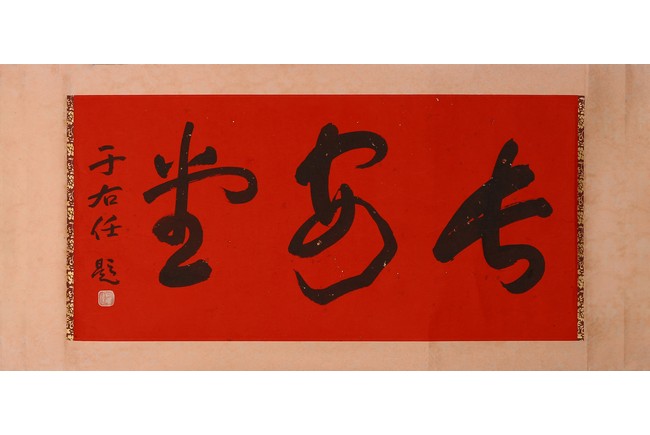 長安堂
于右任題